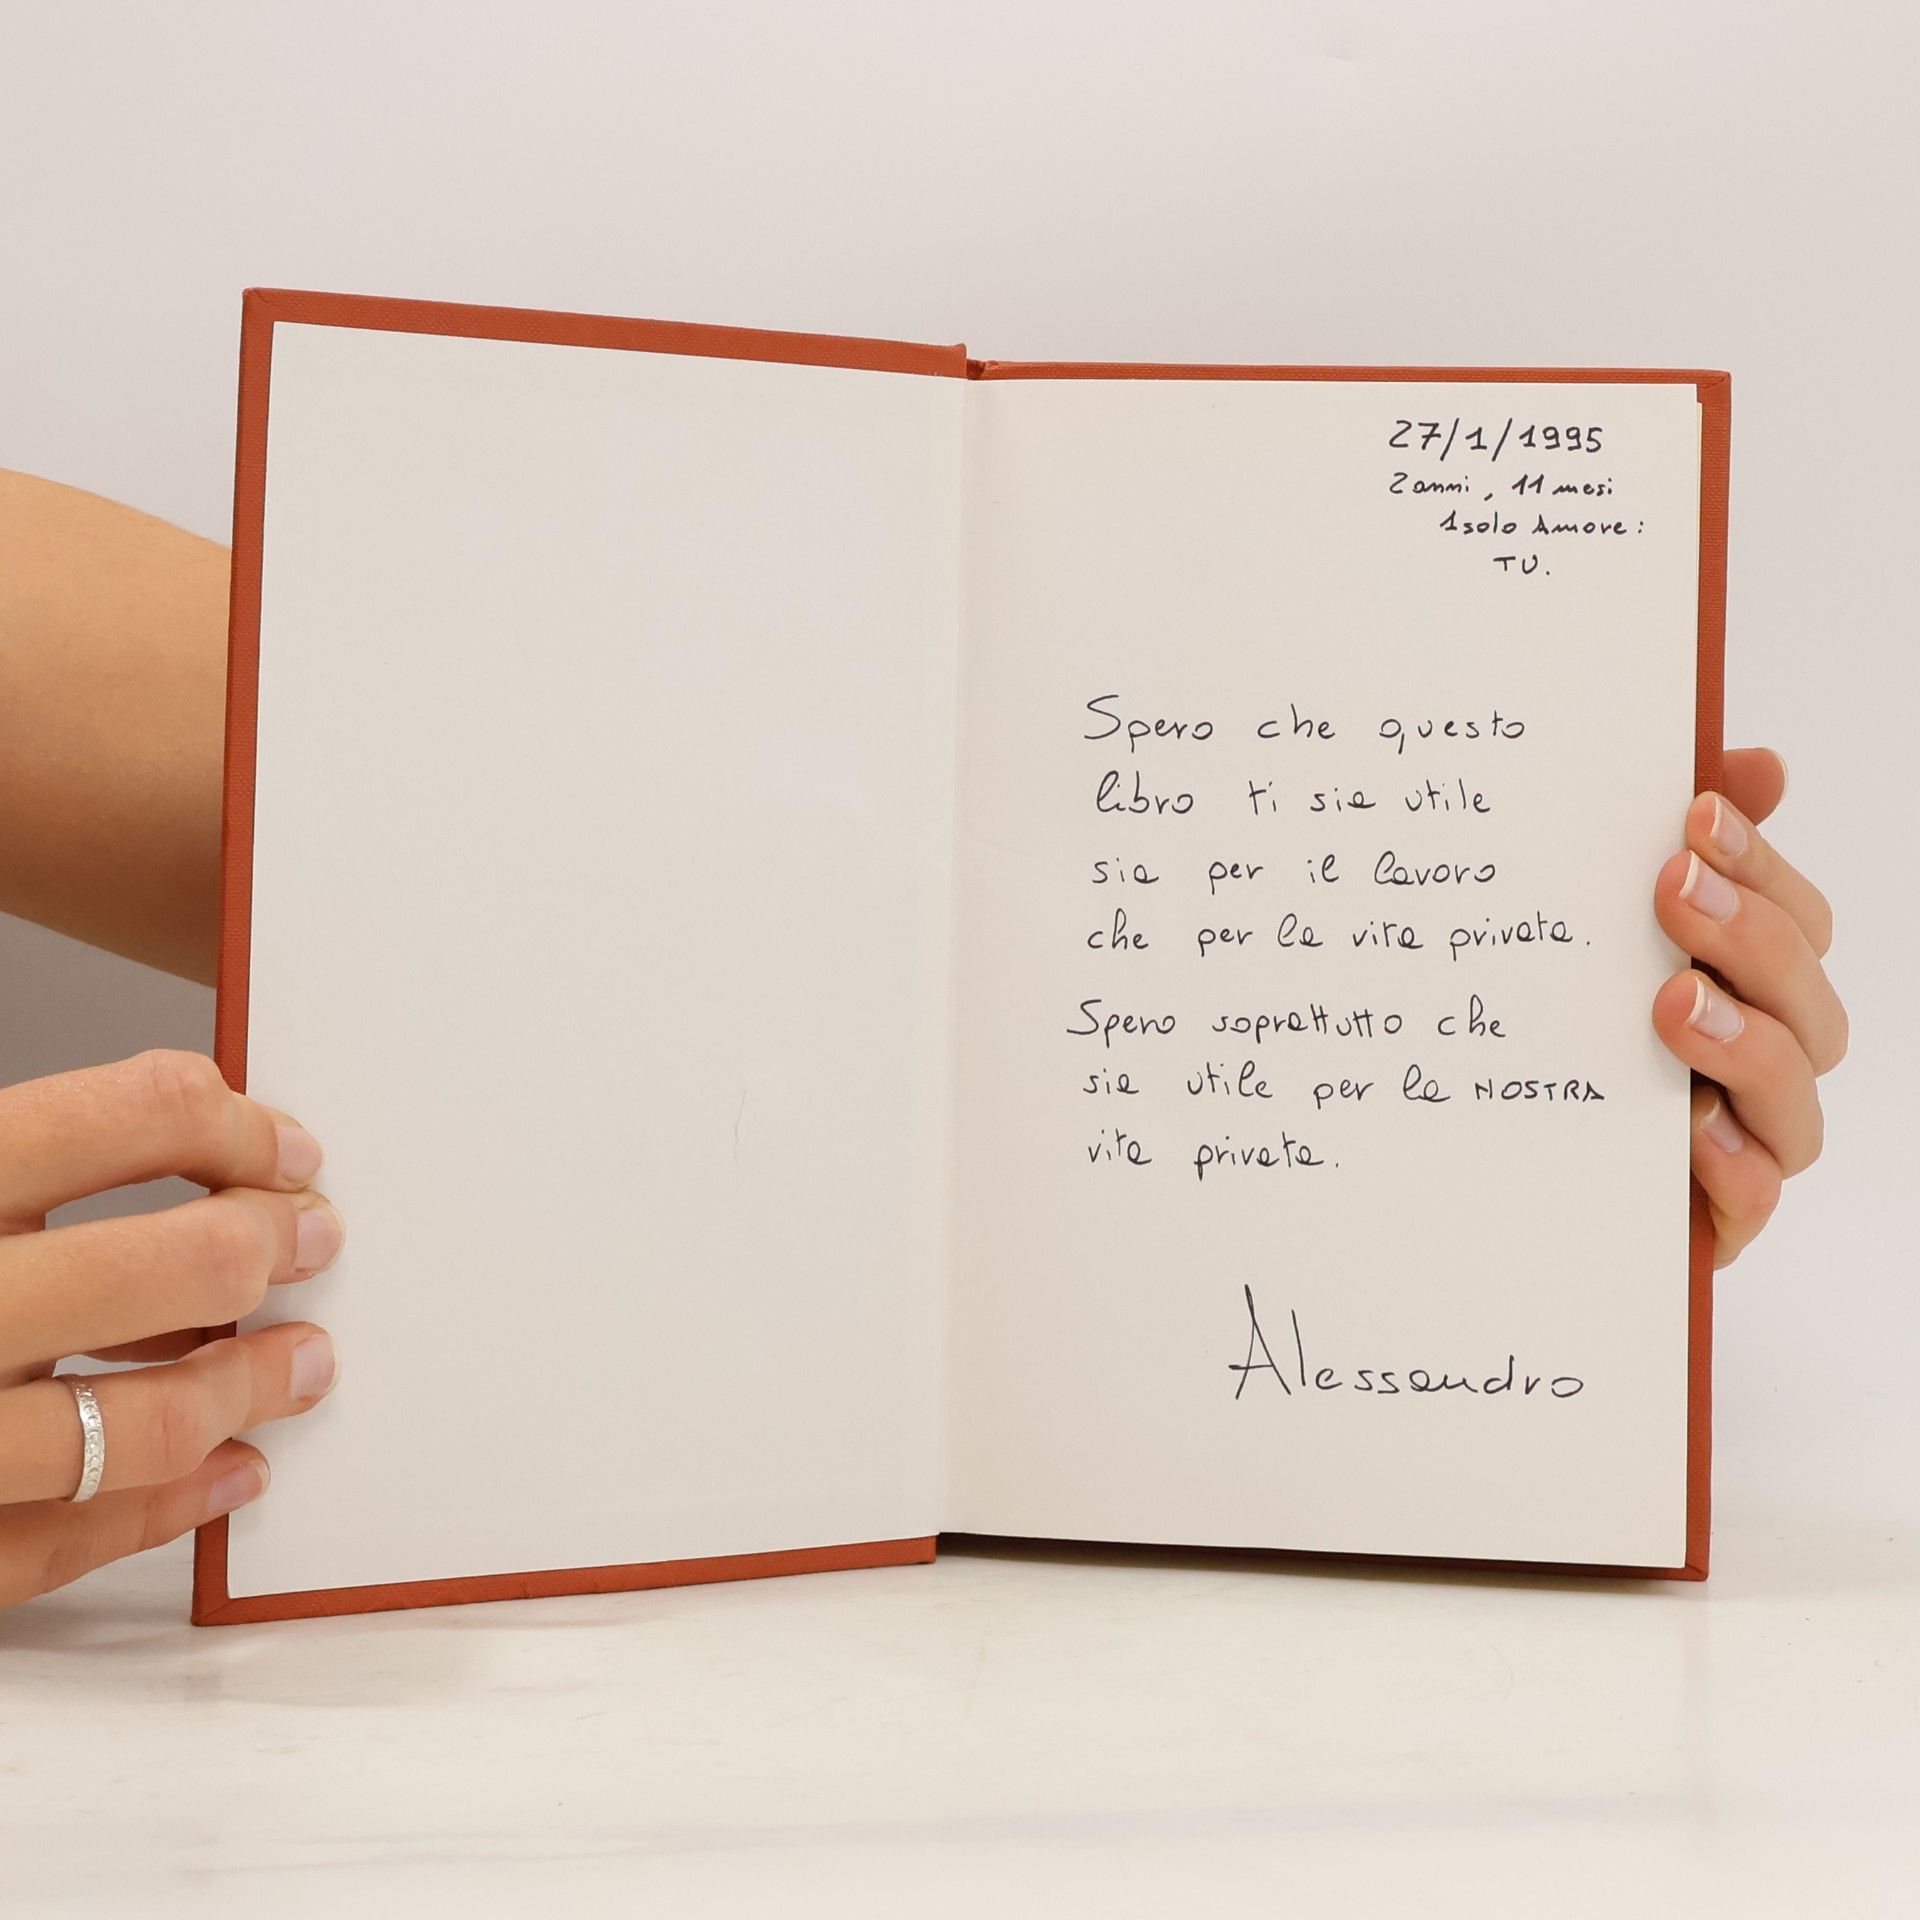 27/1/1995
2 anni, 11 mesi
1 solo Amore:
TU.
Spero che questo
libro ti sia utile
sia per il lavoro
che per la vita privata.
Spero soprattutto che
sia utile per la NOSTRA
vita privata.
Alessandro